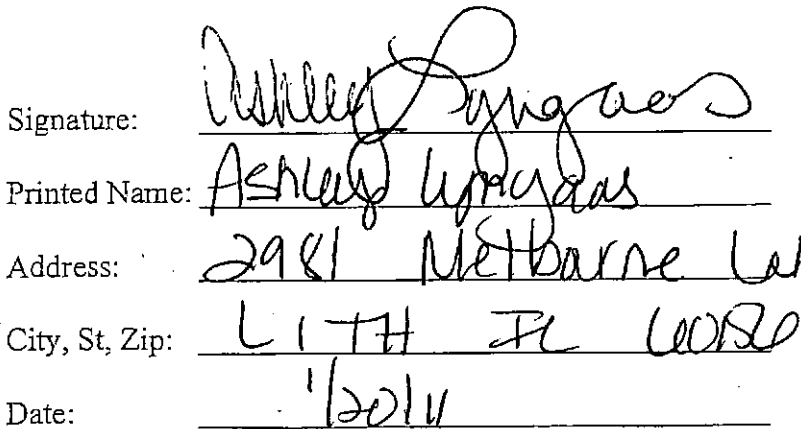 Signature: Ashley Lyngaas
Printed Name: Ashley Lyngaas
Address: 2981 Melbourne Ln
City, St, Zip: LITH IL 60156
Date: 1/20/11